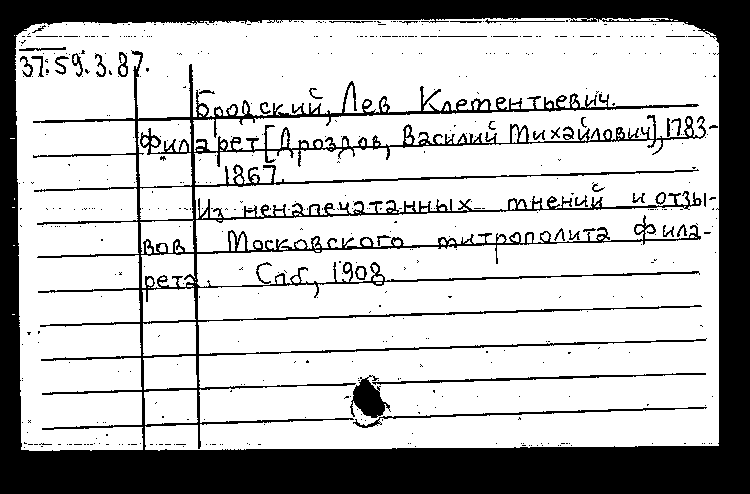 37:59.3.87.
Бродский, Лев Клементьевич.
Филарет [Дроздов, Василий Михайлович], 1783-
1867.
Из ненапечатанных мнений и отзы-
вов Московского митрополита Фила-
рета. Спб., 1908